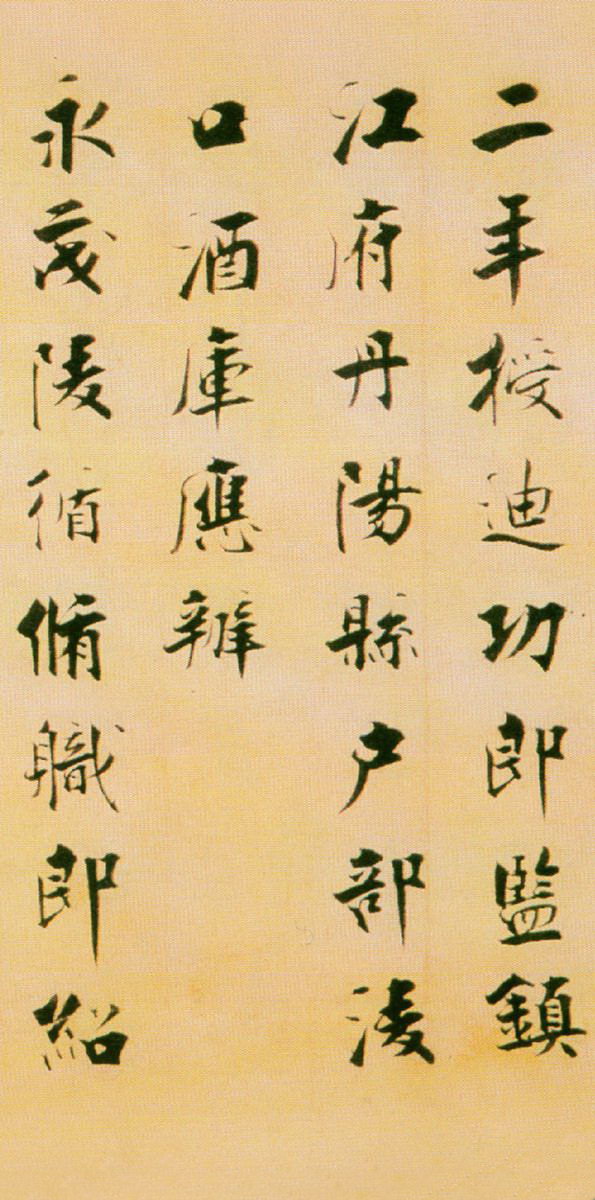 二年授迪功郎監鎮
江府丹陽縣户部淩
口酒庫應辦
永茂陵循脩職郎紹